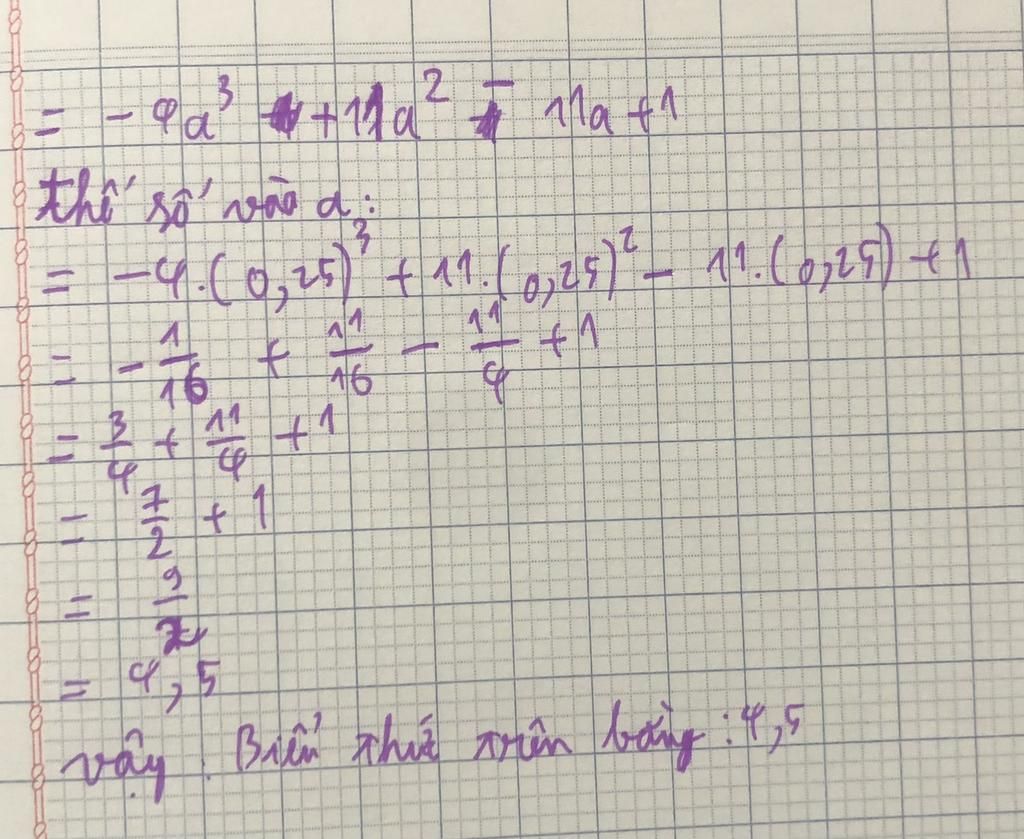 = - 4a³ + 11a² - 11a + 1
thế số vào a:
= - 4.(0,25)³ + 11.(0,25)² - 11.(0,25) + 1
= - 1/16 + 11/16 - 11/4 + 1
= 3/4 + 11/4 + 1
= 7/2 + 1
= 9/2
= 4,5
vậy. Biểu thức trên bằng: 4,5